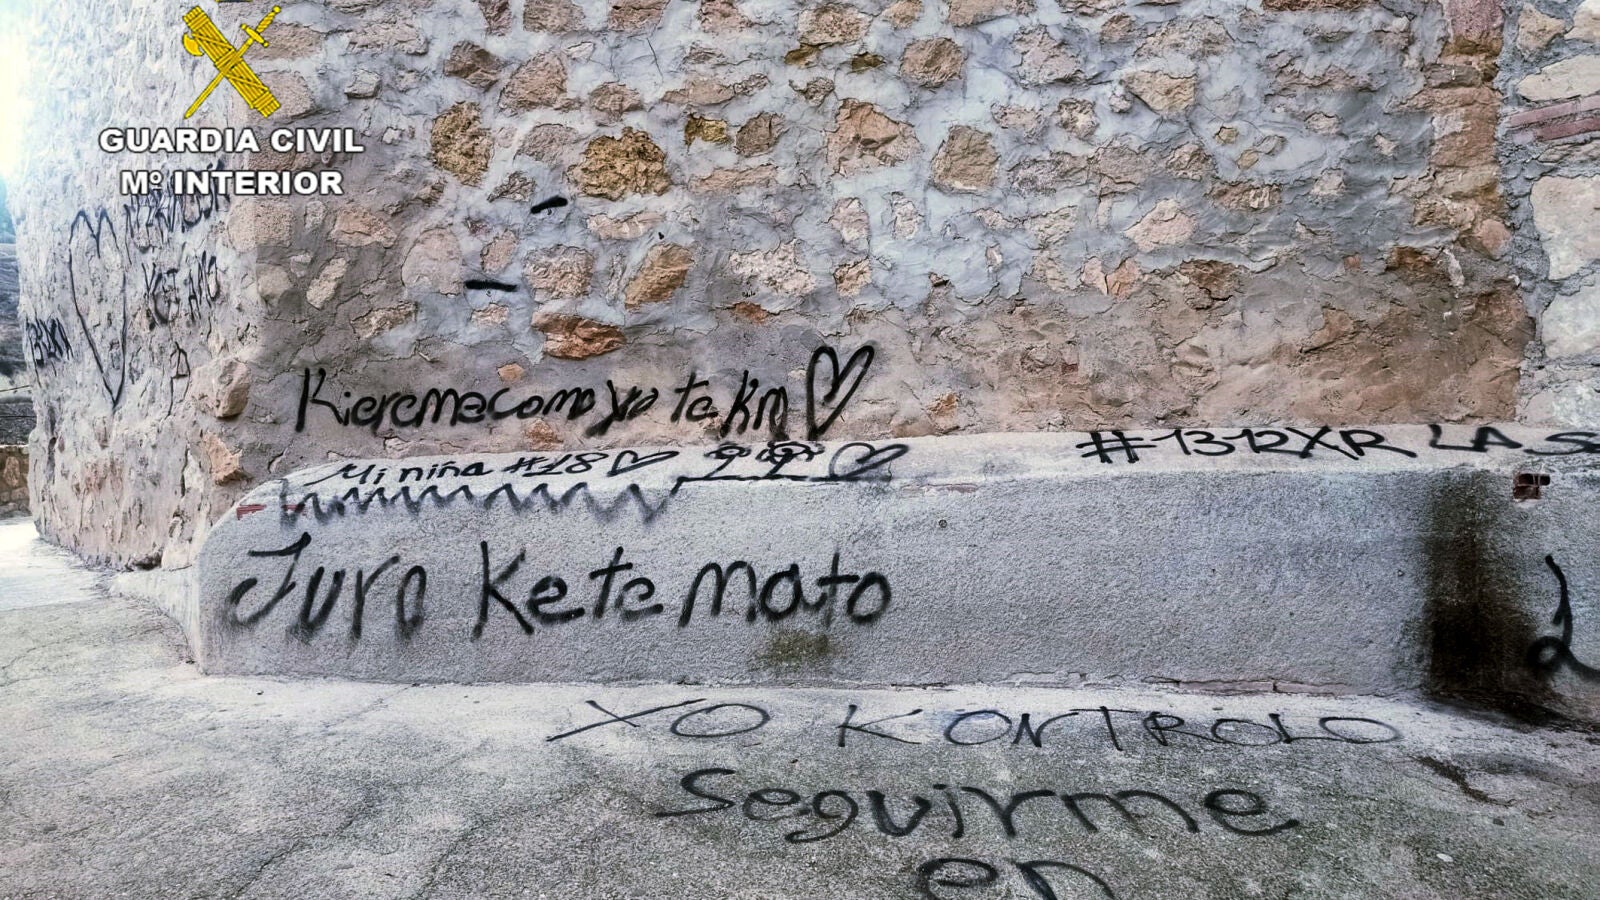 GUARDIA CIVIL
Mº INTERIOR
Kiereme como yo te km
Mi niña #18
#1312RXR LA
Juro Ke te mato
YO KONTROLO
Seguirme
en